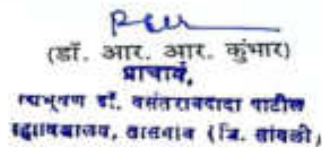 (डॉ. आर. आर. कुंभार)
प्राचार्य,
पद्मभूषण डॉ. वसंतरावदादा पाटील
महाविद्यालय, तासगांव (जि. सांगली)